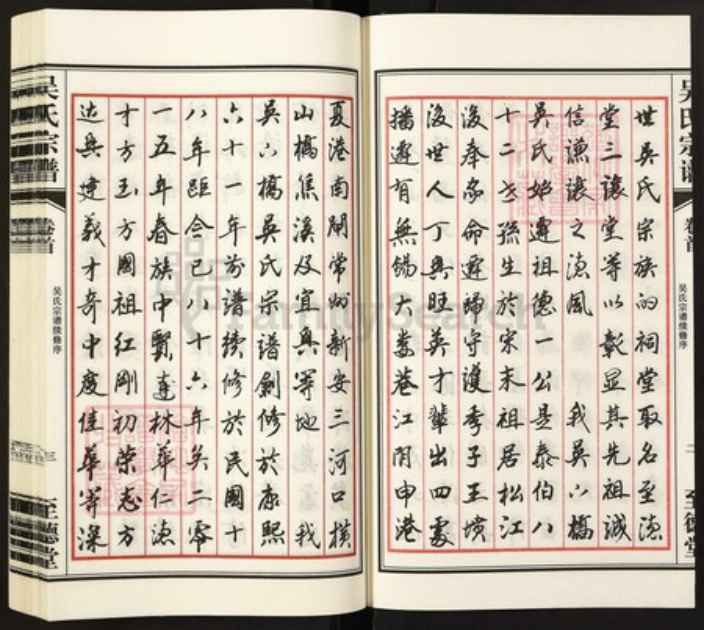 世吴氏宗族的祠堂取名至德
堂三讓堂等以彰显其先祖誠
信謙讓之德風　我吴六橋
吴氏始遷祖德一公是泰伯八
十二世孫生於宋末祖居松江
後奉命遷
後世人丁興旺英才輩出四處
播遷有無錫大婁巷江阴申港
夏港南閘常州新安三河口横
山橋焦溪及宜興等地　我
吴六橋吴氏宗譜創修於康熙
六十一年前譜續修於民國十
八年距今已八十六年矣二零
一五年春族中賢達林華仁德
才方玉方國祖红剛初荣志方
達興建義才奇中度佳華等深
吴氏宗谱
卷首
吴氏宗谱续修序
三
至德堂
吴氏宗谱
卷首
吴氏宗谱续修序
二
至德堂
FamilySearch